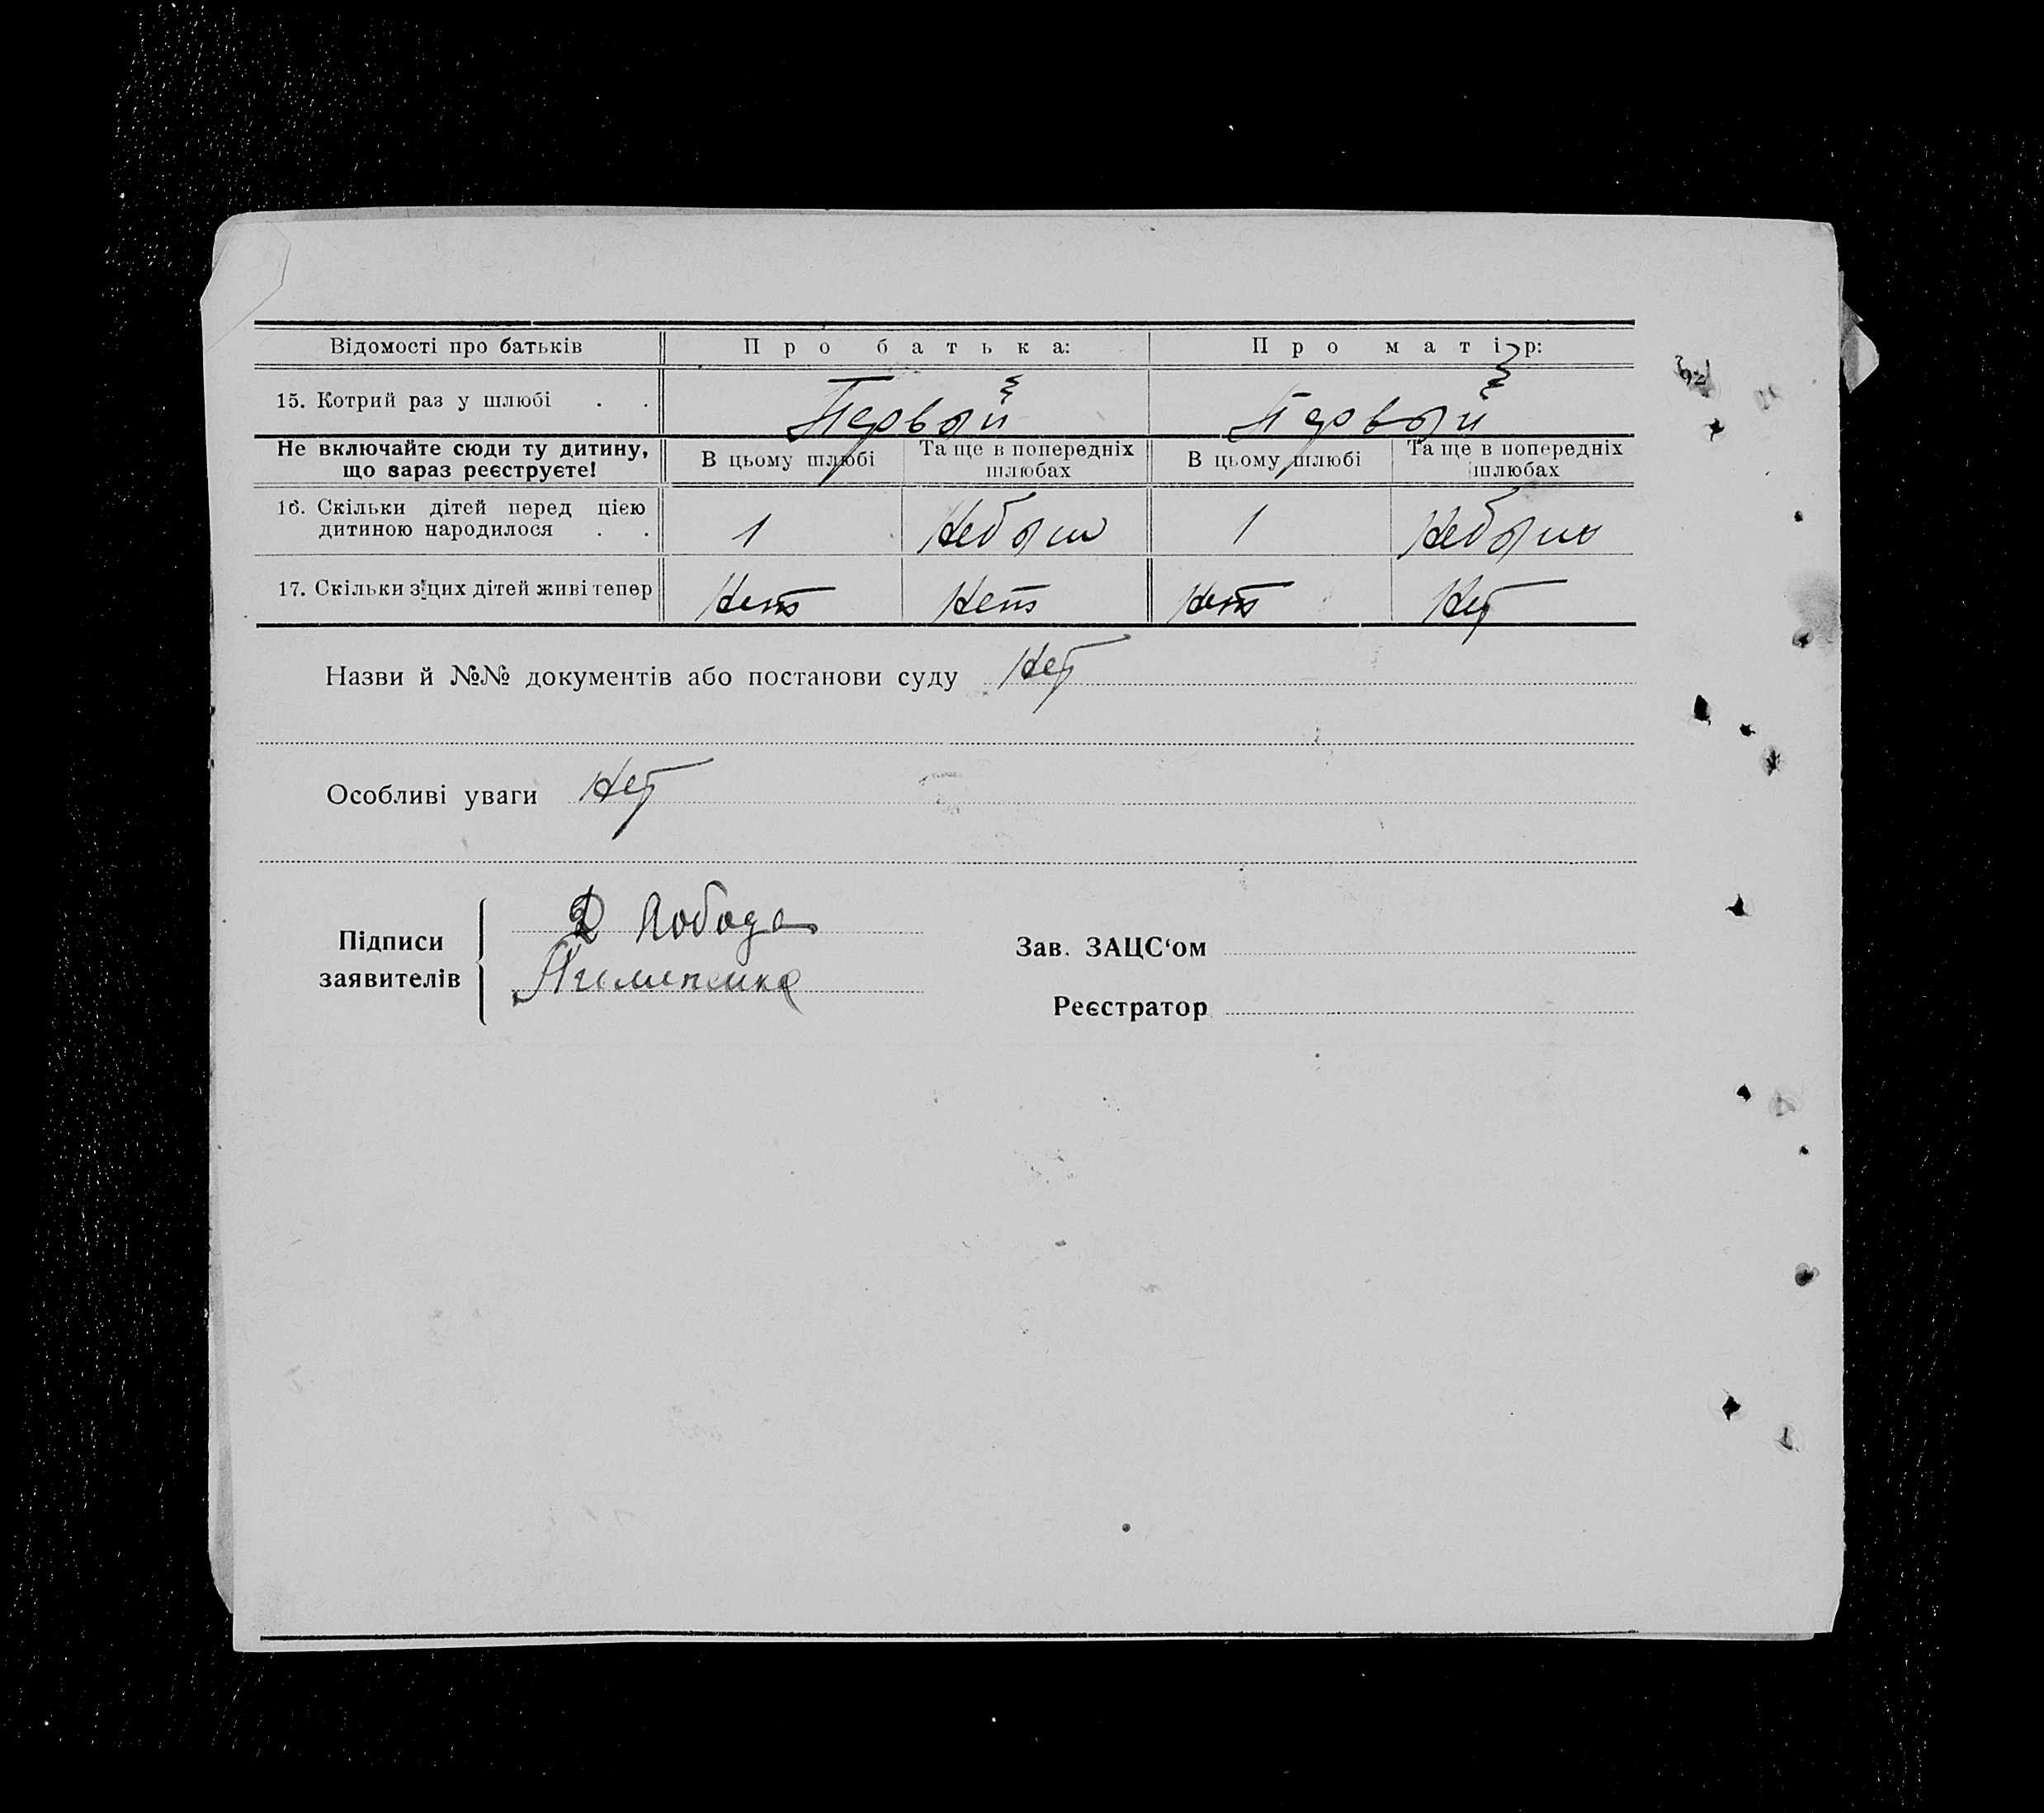 Відомості про батьків Про батька: Про матір:
15. Котрий раз у шлюбі . . Первый Первый
Не включайте сюди ту дитину, що зараз реєструєте! В цьому шлюбі Та ще в попередніх шлюбах В цьому шлюбі Та ще в попередніх шлюбах
16. Скільки дітей перед цією
дитиною народилося . . 1 Небыли 1 Небыли
17. Скільки з цих дітей живі тепер Нет Нет Нет Нет
Назви й №№ документів або постанови суду Нет
Особливі уваги Нет
Підписи заявителів Д Лобода
Зав. ЗАЦС‘ом
Реєстратор